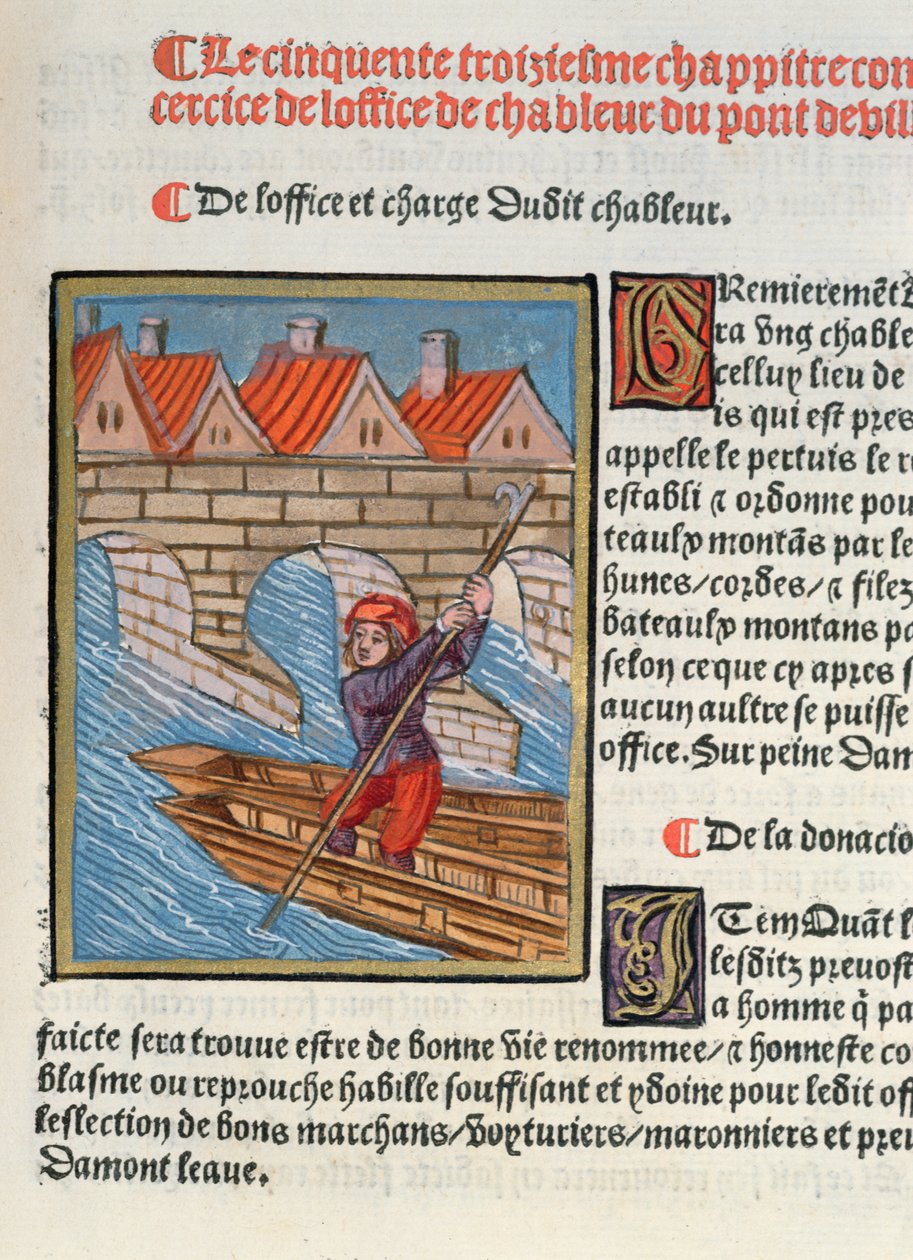 Le cinquente troiziesme chappitre con
cercice de loffice de chableur du pont de vill
De loffice et charge dudit chableur.
Remieremēt
ra vng chable
celluy lieu de
is qui est pres
appelle le pertuis le
establi ⁊ ordonne pou
teaulx montās par le
hunes/cordes/⁊ filez
bateaulx montans pa
selon ce que cy apres s
aucun aultre se puisse
office. Sur peine Dam
De la donacio
I Tem Quāt
lesditz prevost
a homme q̄ pa
faicte sera trouue estre de bonne vie renommee/⁊ honneste co
blasme ou reprouche habille souffisant et ydoine pour ledit off
leslection de bons marchans/voyturiers/maronniers et preu
Damont leaue.